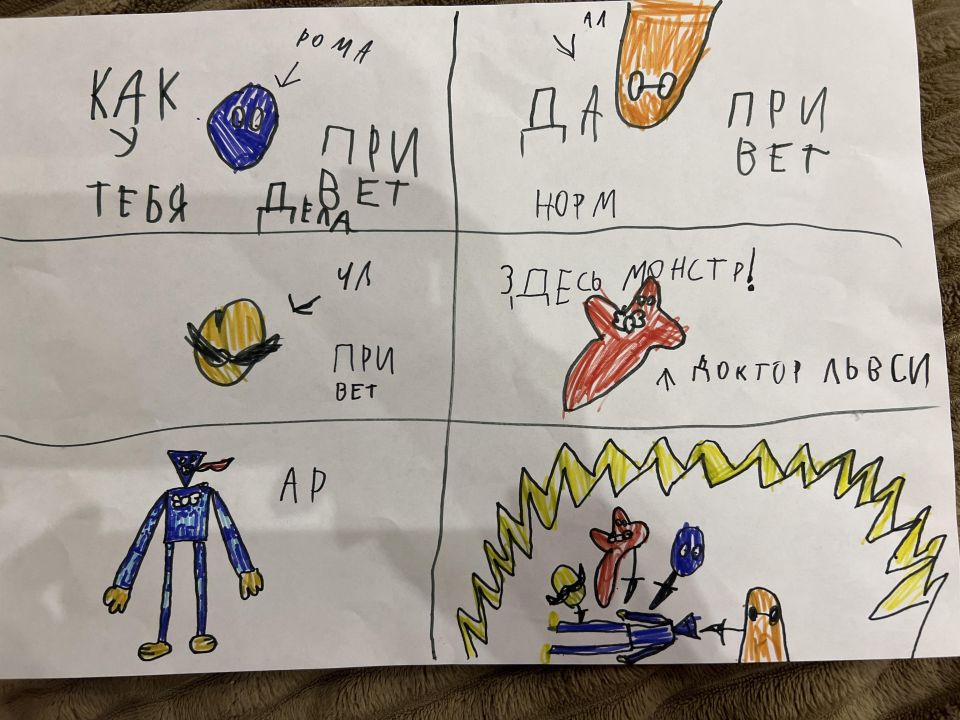 РОМА
КАК
У
ТЕБЯ
ДЕЛА
ПРИ
ВЕТ
АЛ
ДА
НОРМ
ПРИ
ВЕТ
ЧЛ
ПРИ
ВЕТ
ЗДЕСЬ МОНСТР!
ДОКТОР ЛЬВСИ
АР